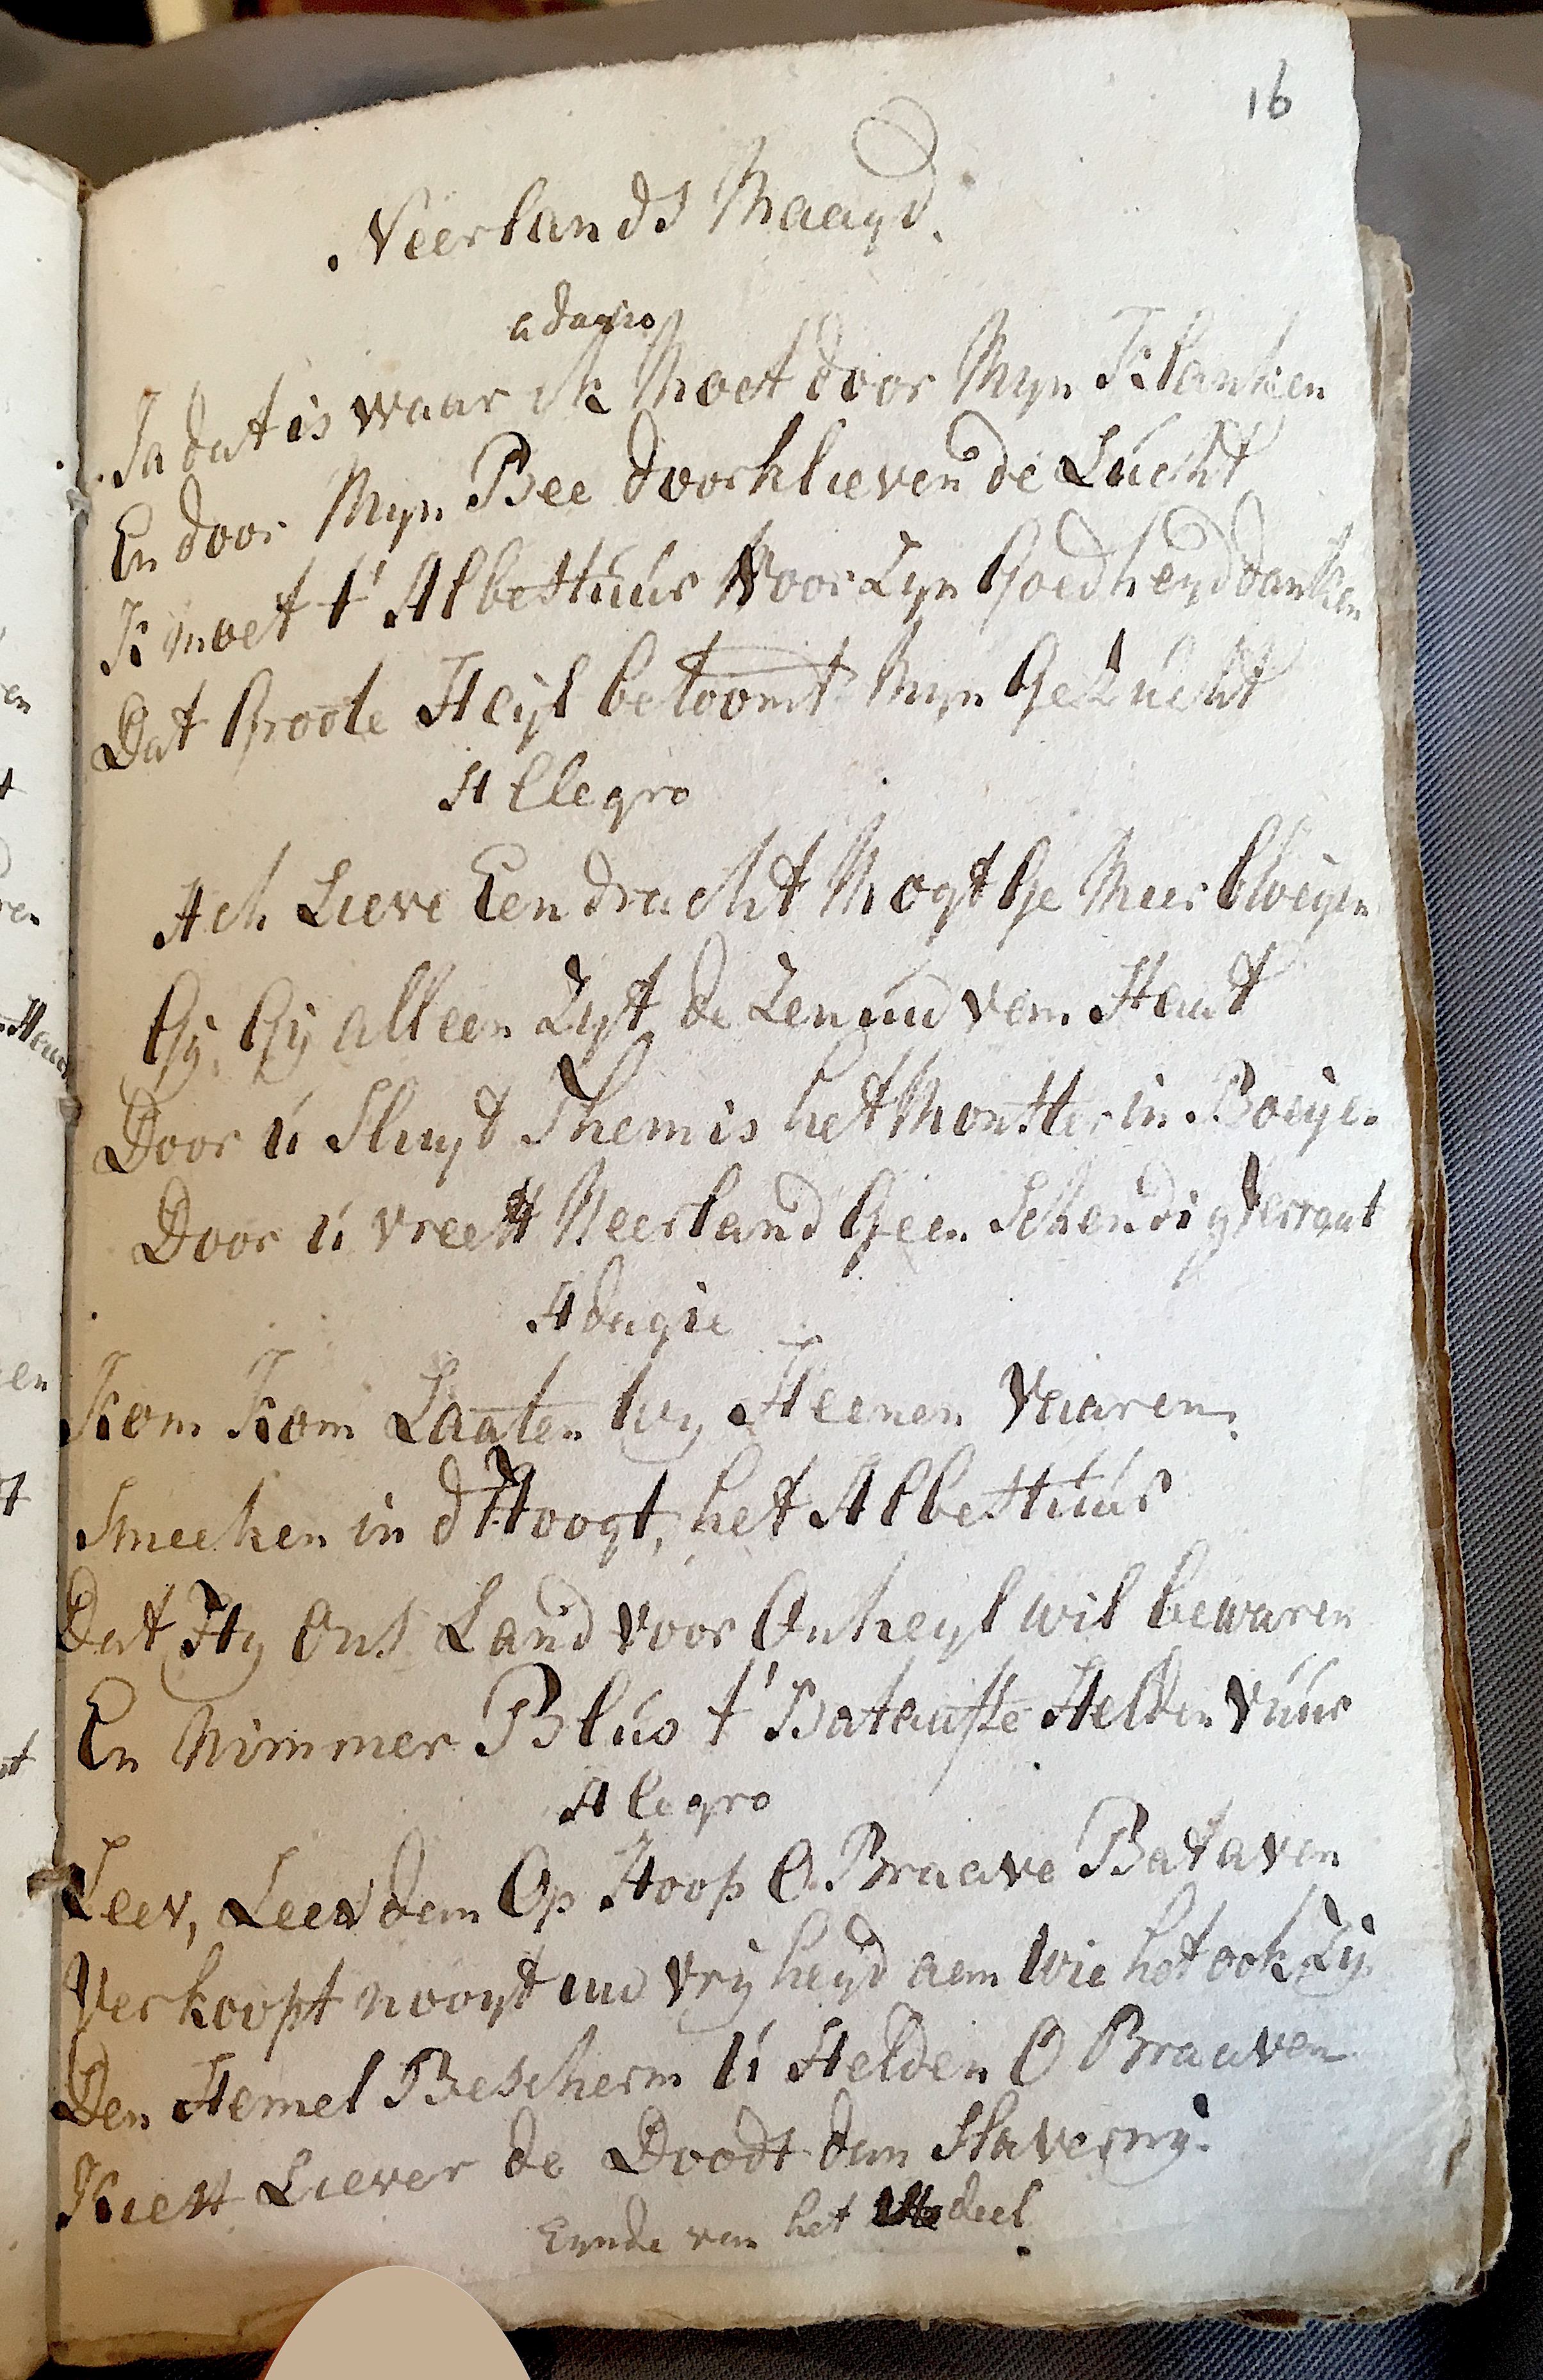 16
Neerlands Maagd.
adagio
Ja dat is waar ik Moet door Myn Klanken
En door Myn Bee doorklieven de Lucht
K moet t' Albestuur Voor Zyn Goedheyd danken
Dat Groote Heyl betoomt Myn Gezucht
Allegro
Ach Lieve Eendracht Mogt Ge Meer bloeyen
Gy, Gy alleen Zyt de Zenuw van Staat
Door ú Sluyt Themis het Monster in Boeyen
Door ú vreest Neerland Geen Schendig verraat
Adagie
Kom Kom Laaten Wy Heenen Vaaren.
Smeeken in d'Hoogt, het Albestuur
Dat Hy Ons Land voor Onheyl wil bewaren
En Nimmer Blus t' Bataafse Helden Vuur
Alegro
Leev, Leev dan Op Hoop O Braave Bataven
Verkoopt nooyt uw vryheyd aan Wie het ook Zy.
Den Hemel Bescherm ú Helden O Braaven
Kiest Liever de Doodt dan Slaverny.
Eynde van het deel